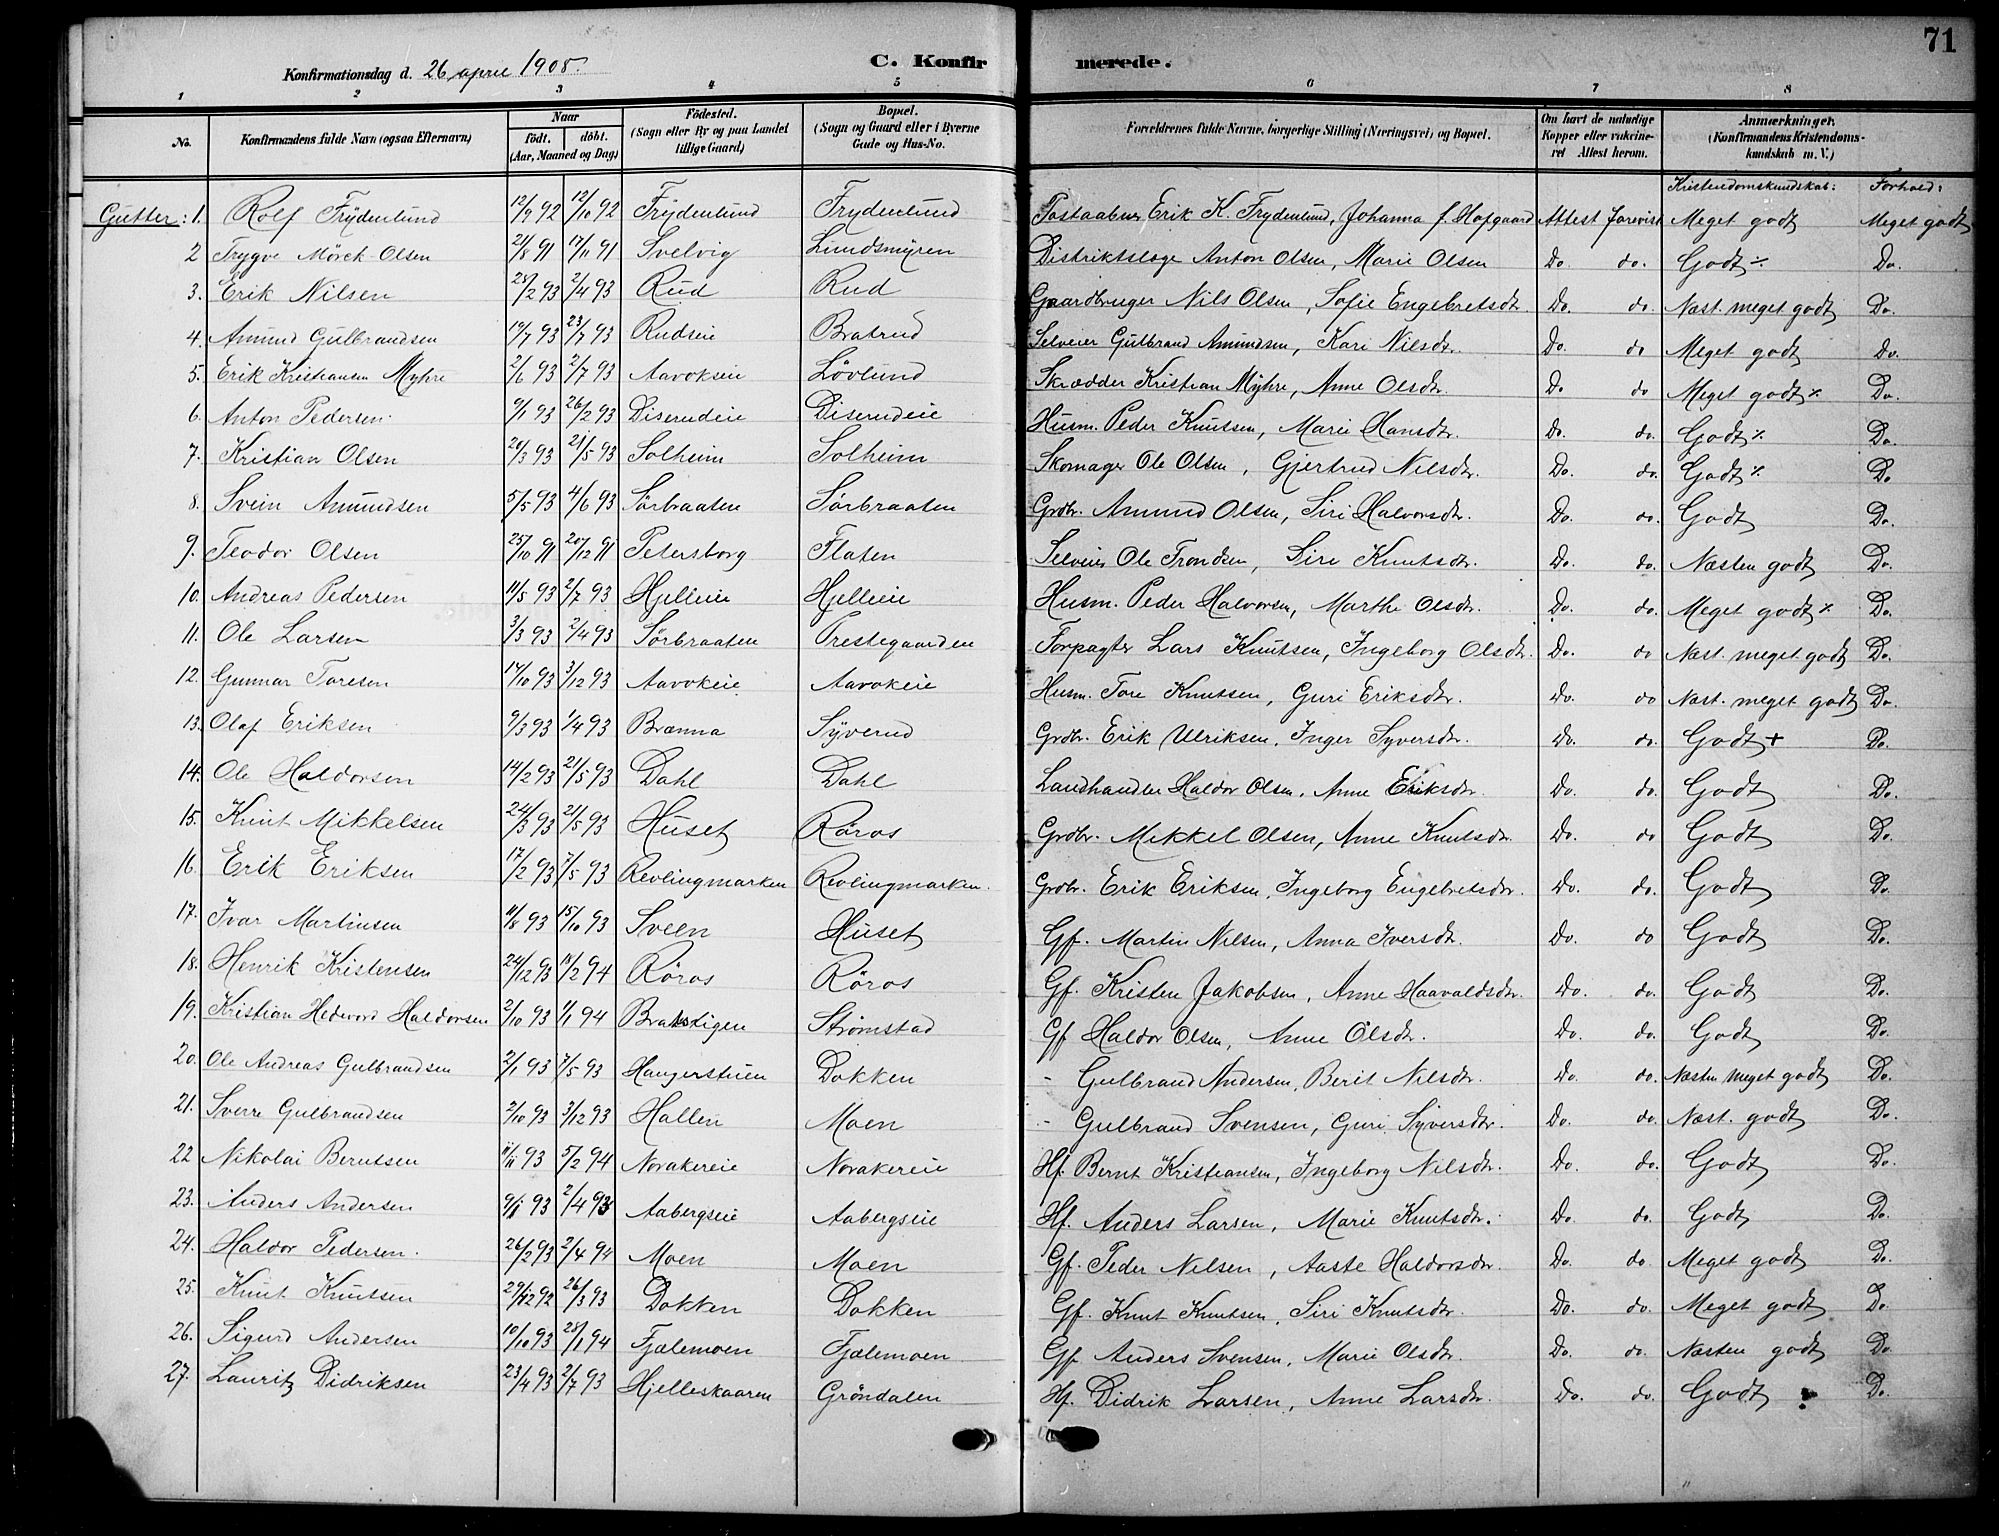 71
Konfirmationsdag d. 26 april 1908. C. Konfirmerede.
1 2 3 4 5 6 7 8
No. Konfirmandens fulde Navn (ogsaa Efternavn) Naar født. døbt. (Aar, Maaned og Dag) Fødested. (Sogn eller By og paa Landet tillige Gaard) Bopæl. (Sogn og Gaard eller i Byerne Gade og Hus-No. Forældrenes fulde Navne, borgerlige Stilling (Næringsvei) og Bopæl. Om havt de naturlige Kopper eller vakcineret Attest herom. Anmærkninger. (Konfirmandens Kristendomskundskab m. V.)
Kristendomskundskab: Forhold:
Gutter: 1. Rolf Frydenlund 12/9 92 12/10 92 Frydenlund Frydenlund Postaabner Erik K. Frydenlund, Johanna f. Hofgaard Attest forevist Meget godt Meget godt
2 Trygve Mörck-Olsen 21/8 91 17/11 91 Svelvig Lundsmyren Distriktslæge Anton Olsen, Marie Olsen Do. do. Godt ٪ Do.
3. Erik Nilsen 25/2 93 2/4 93 Rud Rud Gaardbruger Nils Olsen, Sofie Engebretsdtr. Do. do Næst. meget godt Do.
4. Amund Gulbrandsen 19/7 93 23/7 93 Rudseie Bratrud Selveier Gulbrand Amundsen, Kari Nilsdtr. Do. do Meget godt Do.
5. Erik Kristiansen Myhre 2/6 93 2/7 93 Aavokseie Lövlund Skrædder Kristian Myhre, Anne Olsdtr. Do do Meget godt ٪ Do.
6. Anton Pedersen. 9/1 93 26/2 93 Diserudeie Diserudeie Husm. Peder Knutsen, Marie Hansdtr. Do. do. Godt ٪ Do.
7. Kristian Olsen 24/3 93 21/5 93 Solheim Solheim Skomager Ole Olsen, Gjertrud Nilsdtr. Do. do. Godt ٪ Do
8. Svein Amundsen 5/5 93 4/6 93 Sørbraaten Sørbraaten Grdbr. Amund Olsen, Siri Halvorsdtr. Do. do. Godt Do.
9. Teodor Olsen 25/10 91 20/12 91 Petersborg Flaten Selveier Ole Trondsen, Siri Knutsdtr. Do. do. Næsten godt Do.
10. Andreas Pedersen 11/5 93 2/7 93 Hjelleie Hjelleie Husm. Peder Halvorsen, Marthe Olsdtr. Do. do. Meget godt ٪ Do.
11. Ole Larsen 3/3 93 2/4 93 Sørbraaten Prestegaarden Forpagter Lars Knutsen, Ingeborg Olsdtr. Do. do Næst. meget godt Do.
12. Gunnar Toresen 14/10 93 3/12 93 Aavokeie Aavokeie Husm. Tore Knutsen, Guri Eriksdtr. Do. do Næst. meget godt Do.
13. Olaf Eriksen 9/3 93 1/4 93 Brænna Syverud Grdbr. Erik Ulriksen, Inger Syversdtr. Do. do. Godt + Do.
14. Ole Haldorsen 14/2 93 21/5 93 Dahl Dahl Landhandler Haldor Olsen, Anne Eriksdtr. Do. do. Godt Do.
15. Knut Mikkelsen 24/3 93 21/5 93 Huset Röros Grdbr. Mikkel Olsen, Anne Knutsdtr. Do. do Godt Do.
16. Erik Eriksen 17/2 93 7/5 93 Revlingmarken Revlingmarken. Grdbr. Erik Eriksen, Ingeborg Engebretsdtr. Do. do. Godt Do.
17. Ivar Martinsen 11/8 93 15/10 93 Sveen Huset Gf. Martin Nilsen, Anna Iversdtr. Do. do Godt Do.
18. Henrik Kristensen 24/12 93 14/2 94 Röros Röros Gf. Kristen Jakobsen, Anne Haavaldsdtr. Do. do. Godt Do.
19. Kristian Hedevord Haldorsen 2/10 93 1/1 94 Bratstigen Strømstad Gf Haldor Olsen, Anne Olsdtr. Do. do. Godt Do.
20. Ole Andreas Gulbrandsen 2/1 93 7/5 93 Haugerstuen Dokken - Gulbrand Andersen, Berit Nilsdtr. Do. do. Næsten meget godt Do.
21. Sverre Gulbrandsen 2/10 93 3/12 93 Hallen Moen - Gulbrand Svensen, Guri Syversdtr. Do. do. Næst. godt Do.
22 Nikolai Berntsen 11/11 93 5/2 94 Norakereie Norakereie Hf. Bernt Kristiansen, Ingeborg Nilsdtr. Do. do. Godt Do.
23. Anders Andersen 9/1 93 2/4 93 Aabergseie Aabergseie Hf. Anders Larsen, Marie Knutsdtr. Do. do. Godt Do.
24. Haldor Pedersen. 26/2 93 2/4 94 Moen Moen Gf. Peder Nilsen, Aaste Haldorsdtr. Do. do. Meget godt Do.
25. Knut Knutsen 29/12 92 26/3 93 Dokken Dokken Gf. Knut Knutsen, Siri Knutsdtr. Do. do. Meget godt Do.
26. Sigurd Andersen 10/10 93 28/1 94 Fjælemoen Fjælemoen Gf Anders Svensen, Marie Olsdtr. Do. do. Næsten godt Do.
27. Lauritz Didriksen 23/4 93 2/7 93 Hjelleskaaren Gröndalen Hf. Didrik Larsen, Anne Larsdtr. Do. do. Godt Do.